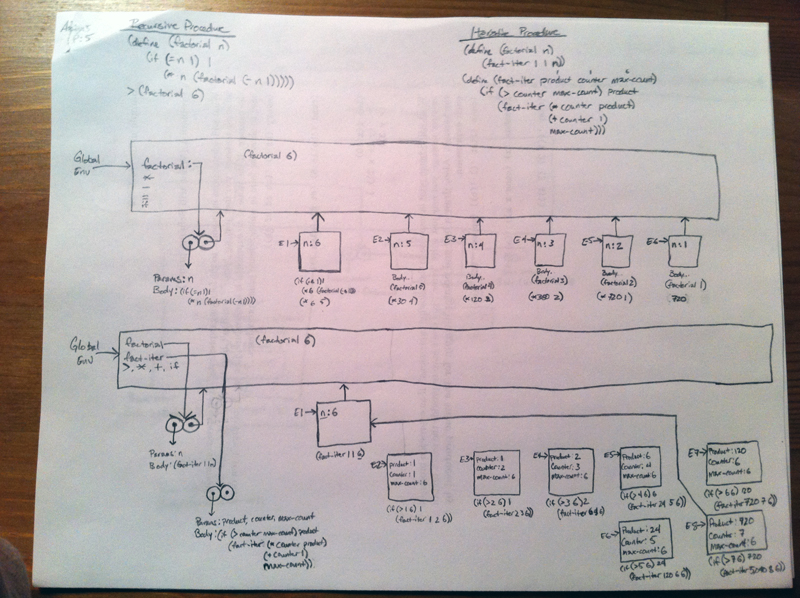 Recursive Procedure
(define (factorial n)
(if (= n 1) 1
(* n (factorial (- n 1)))))
> (factorial 6)
Iterative Procedure
(define (factorial n)
(fact-iter 1 1 n))
(define (fact-iter product counter max-count)
(if (> counter max-count) product
(fact-iter (* counter product)
(+ counter 1)
max-count)))
Global
Env
factorial:
*
(factorial 6)
Params: n
Body: (if (= n 1) 1
(* n (factorial (- n 1))))
E1
n:6
(* 6 5)
E2
n:5
Body..
(* 30 4)
E3
n:4
Body..
(* 120 3)
E4
n:3
Body..
(factorial 3)
(* 360 2)
E5
n:2
Body..
(factorial 2)
(* 720 1)
E6
n:1
Body..
(factorial 1)
720
Global
Env
factorial
fact-iter
>, *, +, if
(factorial 6)
Params: n
Body: (fact-iter 1 1 n)
E1
n:6
(fact-iter 1 1 6)
Params: product, counter, max-count
Body: (if (> counter max-count) product
(fact-iter (* counter product)
(+ counter 1)
max-count))
E2
product: 1
counter: 1
max-count: 6
(if (> 1 6) 1
(fact-iter 1 2 6))
E3
product: 1
counter: 2
max-count: 6
(if (> 2 6) 1
(fact-iter 2 3 6))
E4
product: 2
counter: 3
max-count: 6
(if (> 3 6) 2
E5
product: 6
counter: 4
max-count: 6
(if (> 4 6) 6
(fact-iter 24 5 6))
E6
product: 24
counter: 5
max-count: 6
(if (> 5 6) 24
(fact-iter 120 6 6))
E7
product: 120
counter: 6
max-count: 6
(if (> 6 6) 120
(fact-iter 720 7 6))
E8
product: 720
counter: 7
max-count: 6
(if (> 7 6) 720
(fact-iter 5040 8 6))